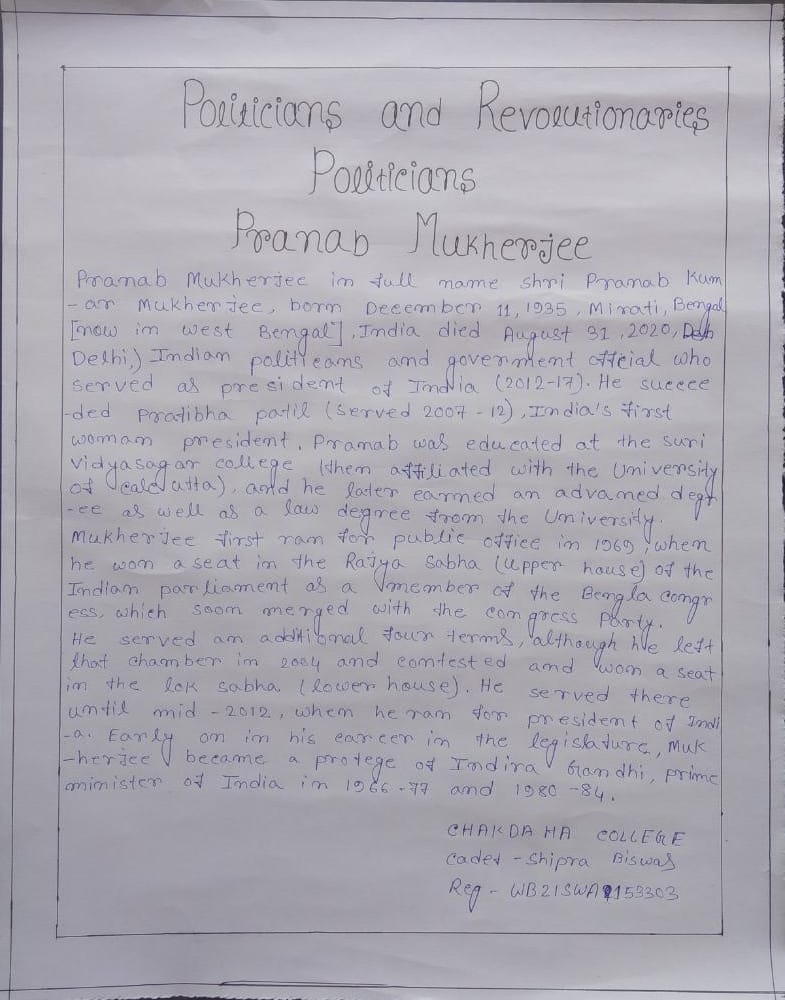 Politicians and Revolutionaries
Politicians
Pranab Mukherjee
Pranab Mukherjee in full name shri Pranab Kum
-ar Mukherjee, born December 11, 1935, Mirati, Bengal
[now in west Bengal], India died August 31, 2020,
Delhi,) Indian politicans and government official who
served as president of India (2012-17). He succee
-ded Pratibha patil (served 2007-12), India's first
woman president. Pranab was educated at the suri
vidyasagar college (then affiliated with the University
of calcutta), and he later earned an advanced degr
-ee as well as a law degree from the University.
Mukherjee first ran for public office in 1969, when
he won a seat in the Rajya sabha (upper house) of the
Indian parliament as a member of the Bengla congr
ess, which soon merged with the congress Party.
He served an additional four terms, although he left
that chamber in 2004 and contested and won a seat
in the lok sabha (lower house). He served there
until mid-2012, when he ran for president of Indi
-a. Early on in his career in the legislature, Muk
-herjee became a protege of Indira Gandhi, prime
minister of India in 1966-77 and 1980-84.
CHAKDAHA COLLEGE
Cadet - Shipra Biswas
Reg - WB21SWA2153303